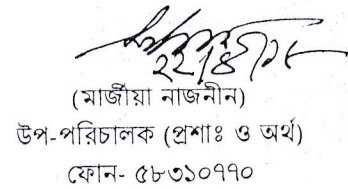 ২২/৪/১৮
(মার্জীয়া নাজনীন)
উপ-পরিচালক (প্রশাঃ ও অর্থ)
ফোন- ৫৮৩১০৭৭০